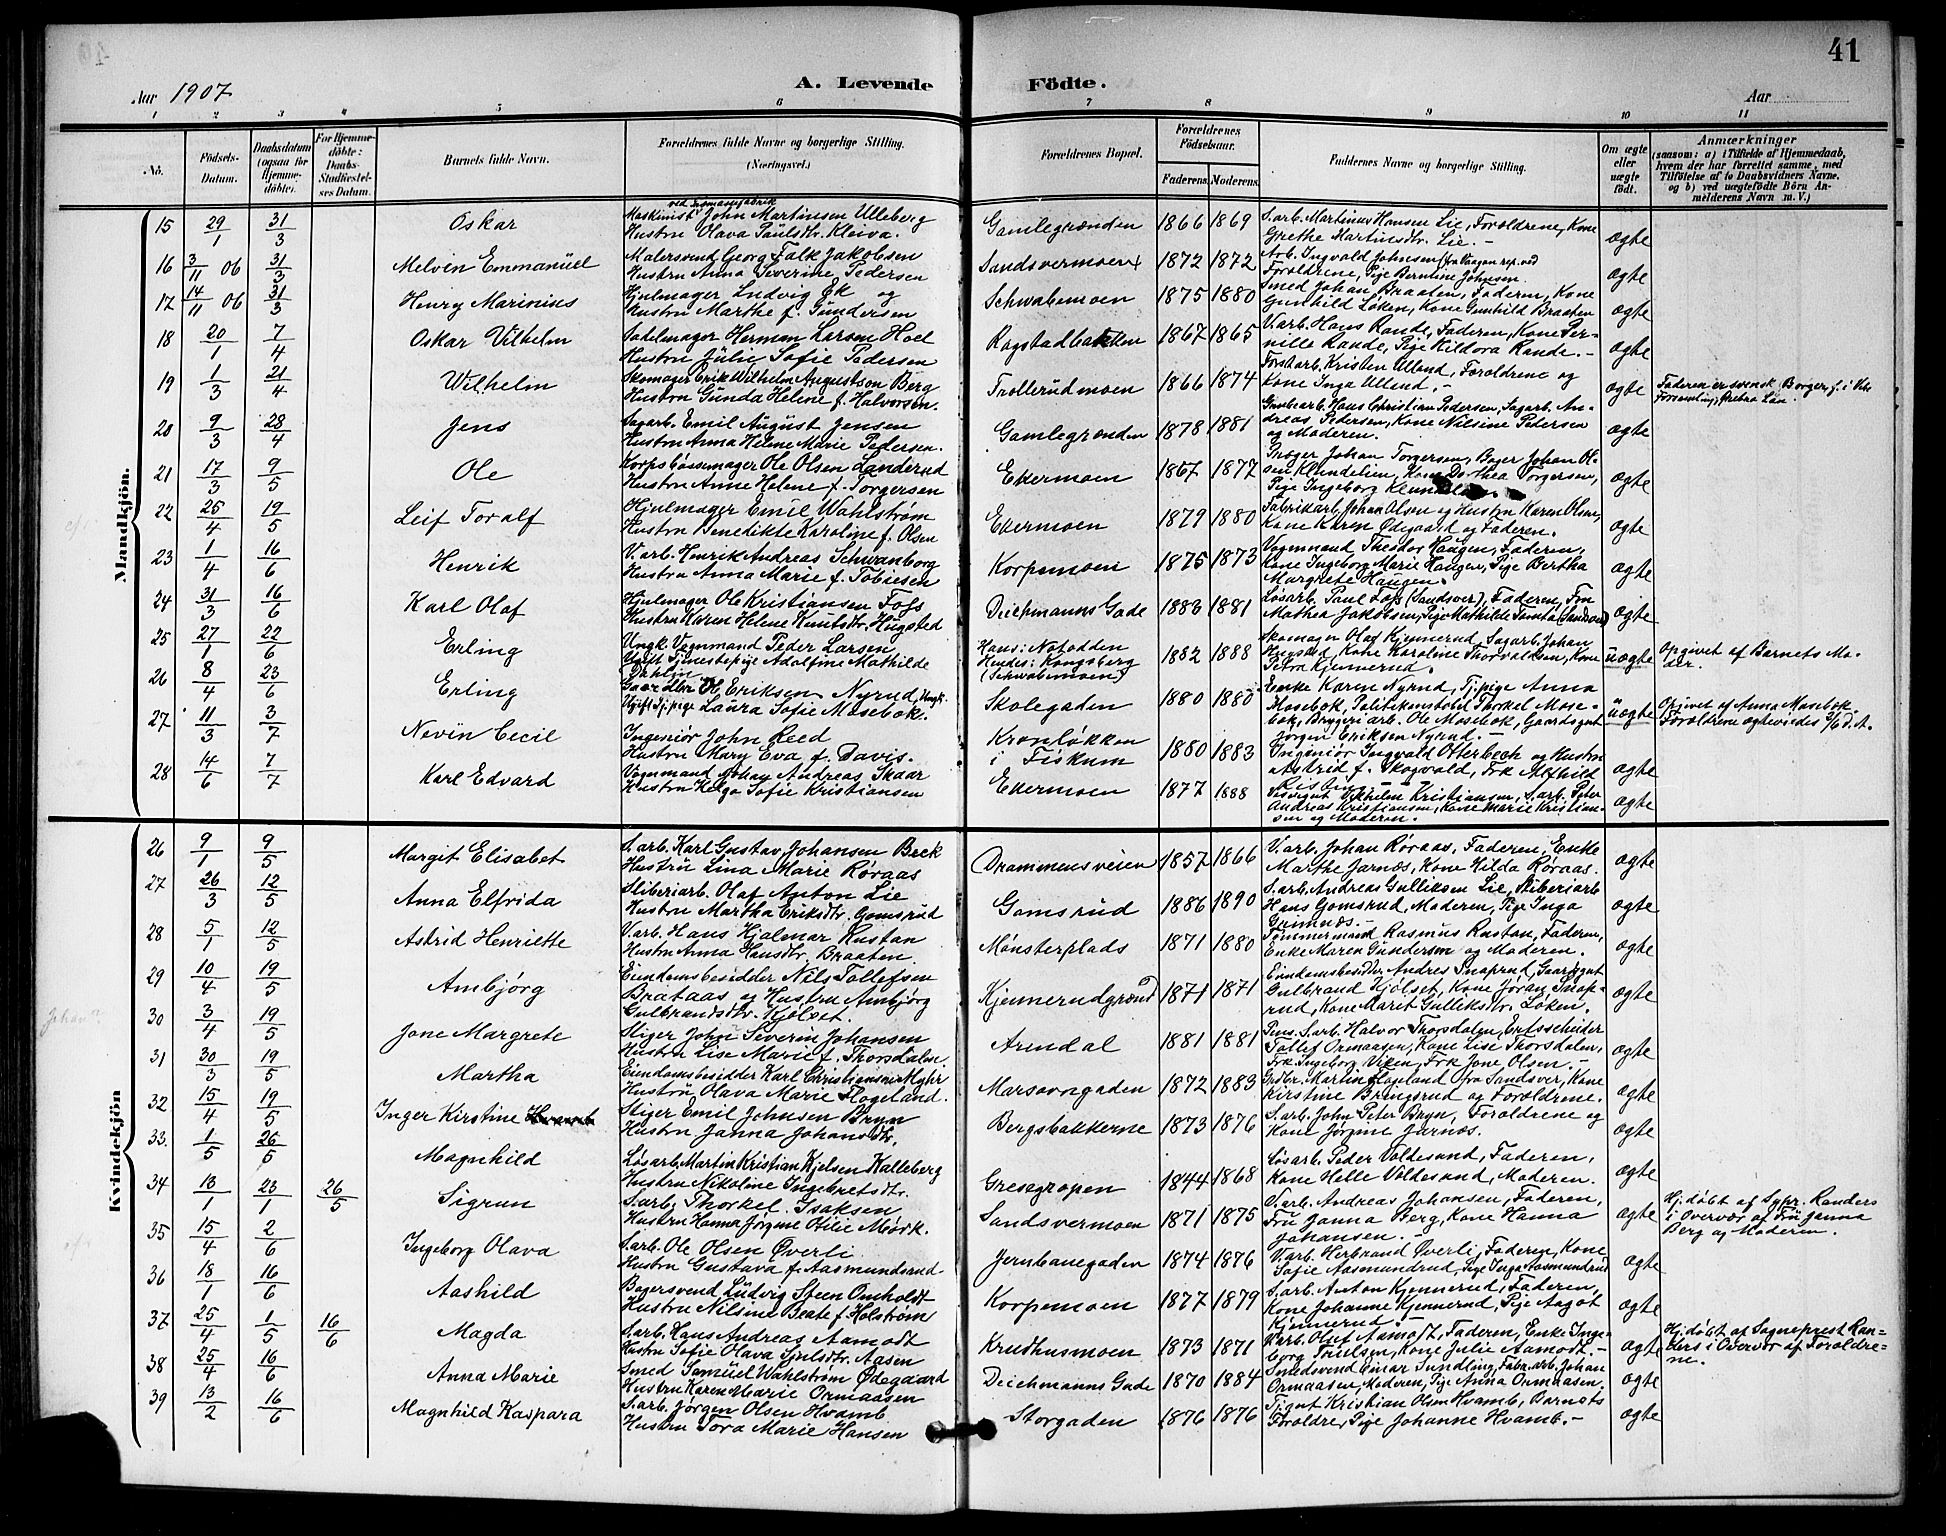 41
Aar 1907
A. Levende Födte.
Aar
1 2 3 5 6 7 8 9 10 11
No.
Födsels-Datum.
Daabsdatum (ogsaa for Hjemme-döbte).
For Hjemme-döbte: Daabs-Stadfæstelses Datum.
Barnets fulde Navn.
Forældrenes fulde Navne og borgerlige Stilling. (Næringsvei.)
Forældrenes Bopæl.
Forældrenes Födselsaar.
Faderens. Moderens.
Faddernes Navne og borgerlige Stilling.
Om ægte eller uægte födt.
Anmærkninger
(saasom: a) i Tilfælde af Hjemmedaab, hvem der har forrettet samme, med Tilföielse af to Daabsvidners Navne, og b) ved uægtefödte Börn Anmelderens Navn m. V.)
Mandkjön.
15 29/1 31/3 Oskar
ved
Maskinist John Martinsen Ulleberg
Hustru Olava Paulsdtr. Kleiva.
Gamlegrænden 1866 1869
S.arb. Martinus Hansen Lie, Forældrene, Kone
Grethe Martinsdtr. Lie. –
ægte
16 3/11 06 31/3 Melvin Emmanuel
Malersvend Georg Falk Jakobsen
Hustru Anna Severine Pedersen
Sandsvermoen 1872 1872
Arb. Ingvald Johnsen
Forældrene, Pige Berntine Johnsen
ægte
17 14/11 06 31/3 Henry Marinius
Hjulmager Ludvig Ek og
Hustru Marthe f. Gundersen
Schwabemoen 1875 1880
Smed Johan Braaten, Faderen, Kone
Gunhild Løken, Kone Gunhild Braaten
ægte
18 20/1 7/4 Oskar Vilhelm
Sadelmager Herman Larsen Hoel
Hustru Julie Sofie Pedersen
Ragstadbakken 1867 1865
V.arb. Hans Rande, Faderen, Kone Per-
nille Rande, Pige Hildora Rande. –
ægte
19 1/3 21/4 Wilhelm
Skomager Erik Wilhelm Augustson Berg
Hustru Gunda Helene f. Halvorsen.
Trollerudmoen 1866 1874
Forstarb. Kristen Ulland, Forældrene og
Kone Inga Ulland. –
ægte
Faderen er svensk Borger, f. i
Forsamling, Örebro Län.
20 9/3 28/4 Jens
Sagarb. Emil August Jensen
Hustru Anna Helene Marie Pedersen.
Gamlegrænden 1878 1881
Grubearb. Hans Christian Pedersen, Sagarb. An-
dreas Pedersen, Kone Nilsine Pedersen
og Moderen.
ægte
21 17/3 9/5 Ole
Korpsbøssemager Ole Olsen Landerud
Hustru Anne Helene f. Torgersen
Ekermoen 1867 1877
Johan Torgersen, Bager Johan Ol-
sen Klundelien, Kone Do thea Torgersen,
Pige Ingeborg
ægte
22 25/4 19/5 Leif Toralf
Hjulmager Emil Wahlstrøm
Hustru Benedikte Karoline f. Olsen
Ekermoen 1879 1880
Fabrikarb. Johan Olsen og Hustru Karen Olsen,
Kone Karen Ødegaard og Faderen.
ægte
23 1/4 16/6 Henrik
V.arb. Henrik Andreas Schwanborg
Hustru Anna Marie f. Tobiesen
Korpemoen 1875 1873
Vognmand Theodor Haugen, Faderen,
Kone Ingeborg Marie Haugen, Pige Bertha
Margrete Haugen.
ægte
24 31/3 16/6 Karl Olaf
Hjulmager Ole Kristiansen Foss
Hustru Karen Helene Knutsdtr. Hugsted
Deichmanns Gade 1883 1881
Løsarb. Paul Foss (Sandsver), Faderen, Frn
Mathea Jakobsen, Pige Mathilde Tomta (Sandsver)
ægte
25 27/1 22/6 Erling
Ungk. Vognmand Peder Larsen
Ugift Tjenestepige Adolfine Mathilde
Dahlin
Hans: Notodden
Hendes: Kongsberg
(Schwabemoen)
1882 1888
Skomager Olaf Kjennerud, Sagarb. Johan
Kone Karoline Thorvaldsen, Kone
Petra Kjennerud.
uægte
Opgivet af Barnets Mo-
der.
26 8/4 23/6 Erling
Gaardbr. Ol. Eriksen Nyrud, Ungk.
Ugift Tj.pige Laura Sofie Mosebøk.
Skolegaden 1880 1880
Enke Karen Nyrud, Tj.pige Anna
Mosebøk, Politikonstabel Thorkel Mose-
bøk, Bryggeriarb. Ole Mosebøk, Gaardsgut
Jørgen Eriksen Nyrud. –
uægte
Opgivet af Anna Mosebøk.
Forældrene ægteviedes 9/6 d.A.
27 11/3 3/7 Nevin Cecil
Ingeniør John Reed
Hustru Mary Eva f. Davis.
Kronløkken
i Fiskum
1880 1883
Ingeniør Ingvald Otterbech og Hustru
Astrid f. Skogvold, Frk Alfhild
ægte
28 14/6 7/7 Karl Edvard
Vognmand Johan Andreas Skaar
Hustru Helga Sofie Kristiansen
Ekermoen 1877 1888
Vilhelm Kristiansen, S.arb. Peter
Andreas Kristiansen, Kone Marie Kristian-
sen og Moderen.
ægte
Kvindekjön
26 9/1 9/5 Margit Elisabet
S.arb. Karl Gustav Johansen Brek
Hustru Lina Marie Røraas
Drammensveien 1857 1866
V.arb. Johan Røraas, Faderen, Enke
Marthe Jarnæs, Kone Hilda Røraas.
ægte
27 26/3 12/5 Anna Elfrida
Sliberiarb. Olaf Anton Lie
Hustru Martha Eriksdtr. Gomsrud
Gomsrud 1886 1890
S.arb. Andreas Gulliksen Lie, Sliberiarb
Hans Gomsrud, Moderen, Pige Inga
Grimnæs. –
ægte
28 5/1 12/5 Astrid Henriette
V.arb. Hans Hjalmar Rustan
Hustru Anna Hansdtr. Braaten.
Mønsterplads 1871 1880
Tømmermand Rasmus Rustan, Faderen,
Enke Maren Gundersen og Moderen.
ægte
29 10/4 19/5 Ambjörg
Eiendomsbesidder Nils Tollefsen
Brataas og Hustru Ambjörg
Gulbrandsdtr. Kjölset.
Kjennerudgrænd 1871 1871
Eiendomsbesidder Andres Snaprud, Gaardgut
Gulbrand Kjölset, Kone Jöran Snap-
rud, Kone Marit Gulliksdtr. Løken.
ægte
30 3/4 19/5 Jone Margrete
Stiger John Severin Johansen
Hustru Lise Marie f. Thorsdalen.
Arendal 1881 1881
Pens. S.arb. Halvor Thorsdalen, Ertsscheider
Tollef Ormaasen, Kone Lise Thorsdalen,
Frk. Ingeborg Viken, Frk Jone Olsen. –
ægte
31 30/3 19/5 Martha
Eiendomsbesidder Karl Christiansen Myhr
Hustru Olava Marie Flogeland.
Marsovngaden 1872 1883
Gdbr. Martin Flogeland fra Sandsver, Kone
Kirstine Bringsrud og Forældrene.
ægte
32 15/4 19/5 Inger Kirstine
Stiger Emil Johnsen Bryn
Hustru Janna Johansdtr.
Bergsbakkerne 1873 1876
S.arb. John Peter Bryn, Forældrene og
Kone Jørgine Jarnæs.
ægte
33. 1/5 26/5 Magnhild
Løsarb. Martin Kristian Kjelsen Kalleberg
Hustru Nikoline Ingebretsdtr.
Gresegropen 1844 1868
Løsarb. Peder Voldesund, Faderen,
Kone Helle Voldesund, Moderen.
ægte
34 13/1 23/1 26/5 Sigrun
S.arb. Thorkel Isaksen
Hustru Hanna Jørgine Otilie Mørk.
Sandsvermoen 1871 1875
V.arb. Andreas Johansen, Faderen,
Fru Janna Berg, Kone Hanna
Johansen. –
ægte
Hj.døbt af Sgpr. Randers
i Overvær af Fru Janna
Berg og Moderen.
35 15/4 2/6 Ingeborg Olava
S.arb. Ole Olsen Øverli
Hustru Gustava f. Aasmundsrud
Jernbanegaden 1874 1876
V.arb. Herbrand Øverli, Faderen, Kone
Sofie Aasmundrud, Pige Inga Aasmundrud
ægte
36 18/1 16/6 Aashild
Bagersvend Ludvig Steen Omholdt
Hustru Nilsine Beate f. Holstrøm
Korpemoen 1877 1879
S.arb. Anton Kjennerud, Faderen,
Kone Johanne Kjennerud, Pige Aagot
Kjennerud. –
ægte
37 25/4 1/5 16/6 Magda
S.arb. Hans Andreas Aamodt
Hustru Sofie Olava Sjulsdtr. Aasen
Krudhusmoen 1873 1871
V.arb. Oluf Aamodt, Faderen, Enke Inge-
borg Truelsen, Kone Julie Aamodt. –
ægte
Hj.døbt af Sogneprest Ran-
ders i Overvær af Forældre-
ne.
38 25/4 16/6 Anna Marie
Smed Samuel Wahlstrøm Ødegaard
Hustru Karen Marie Ormaasen
Deichmanns Gade 1870 1884
Smedsvend Einar Sundling, Fabr.arb. Johan
Ormaasen, Moderen, Pige Anna Ormaasen.
ægte
39 13/2 16/6 Magnhild Kaspara
S.arb. Jørgen Olsen Hvamb
Hustru Tora Marie Hansen
Storgaden 1876 1876
Tj.gut Kristian Olsen Hvamb, Barnets
Forældre, Pige Johanne Hvamb. –
ægte